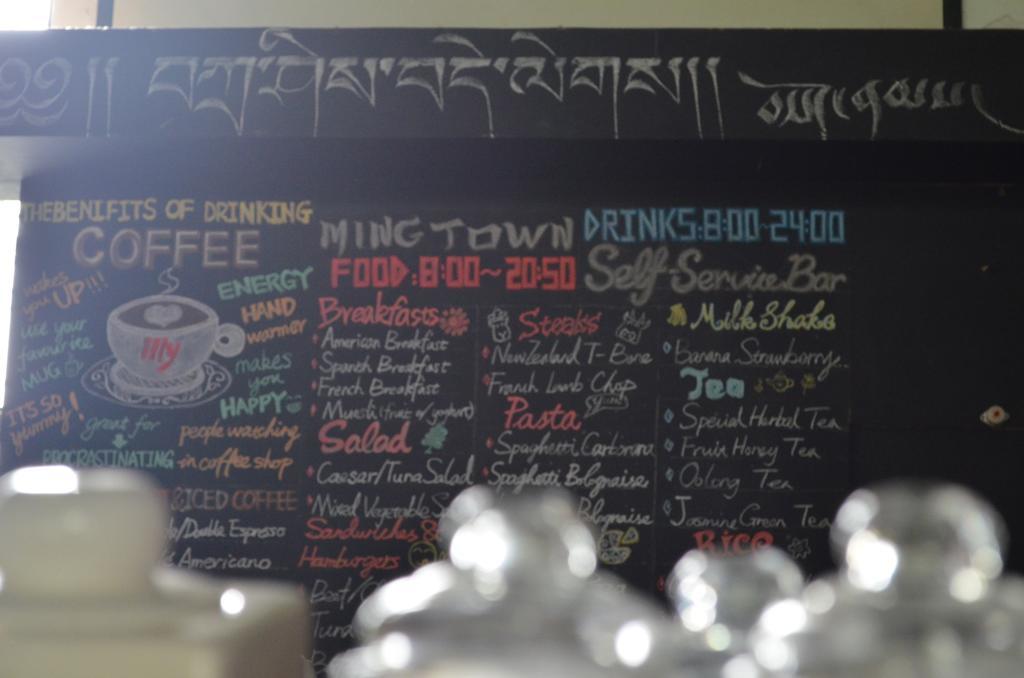 ༄༅།། བཀྲ་ཤིས་བདེ་ལེགས།།།
THE BENIFITS OF DRINKING
COFFEE
makes you UP!!!
use your favourite MUG
IT'S SO yummy!
great for
PROCRASTINATING
illy
ENERGY
HAND warmer
makes you HAPPY
people watching
in coffee shop
ICED COFFEE
Double Espresso
Americano
MING TOWN
FOOD:8:00~20:50
DRINKS:8:00-24:00
Self-Service Bar
Breakfasts
American Breakfast
Spanish Breakfast
French Breakfast
Muesli (fruit w/ yoghurt)
Salad
Caesar/Tuna Salad
Mixed Vegetable
Sandwiches &
Hamburgers
Beef/
Tuna
Steaks
New Zealand T-Bone
French Lamb Chop
Pasta
Spaghetti Carbonara
Spaghetti Bolognaise
Bolognaise
Milk Shake
Banana Strawberry..
Tea
Special Herbal Tea
Fruit Honey Tea
Oolong Tea
Jasmine Green Tea
Rice